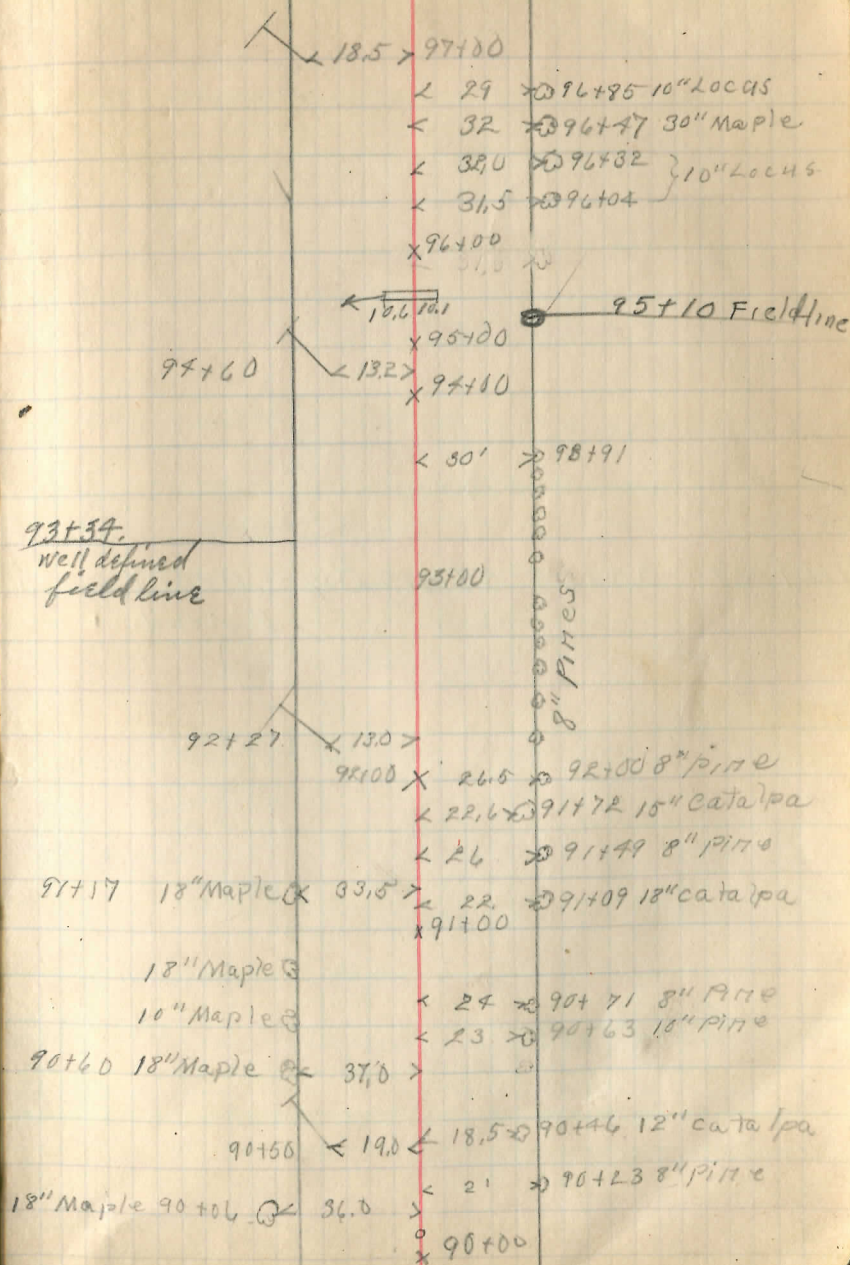 < 18.5 > 97+00
< 29 > 96+85 10" Locus
< 32 > 96+47 30" Maple
< 32.0 > 96+32 } 10" Locus
< 31.5 > 96+04
96+00
10.6 10.1
95+10 Fieldline
95+00
94+60 < 13.2 >
94+00
< 30' > 93+91
93+34.
well defined
field line
93+00
8" Pines
92+27 < 13.0 >
92+00 26.5 92+00 8" pine
< 22.6 > 91+72 15" Catalpa
< 26 > 91+49 8" Pine
91+17 18" Maple < 33.5 >
< 22. > 91+09 18" catalpa
91+00
18" Maple
10" Maple
< 24 > 90+71 8" Pine
< 23 > 90+63 10" Pine
90+60 18" Maple < 37.0 >
< 18.5 90+46 12" catalpa
90+50 < 19.0
< 21 > 90+23 8" Pine
18" Maple 90+06 < 36.0 >
90+00